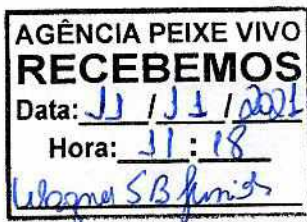 AGÊNCIA PEIXE VIVO
RECEBEMOS
Data: 11 / 11 / 2021
Hora: 11 : 18
Wagner SB Junior